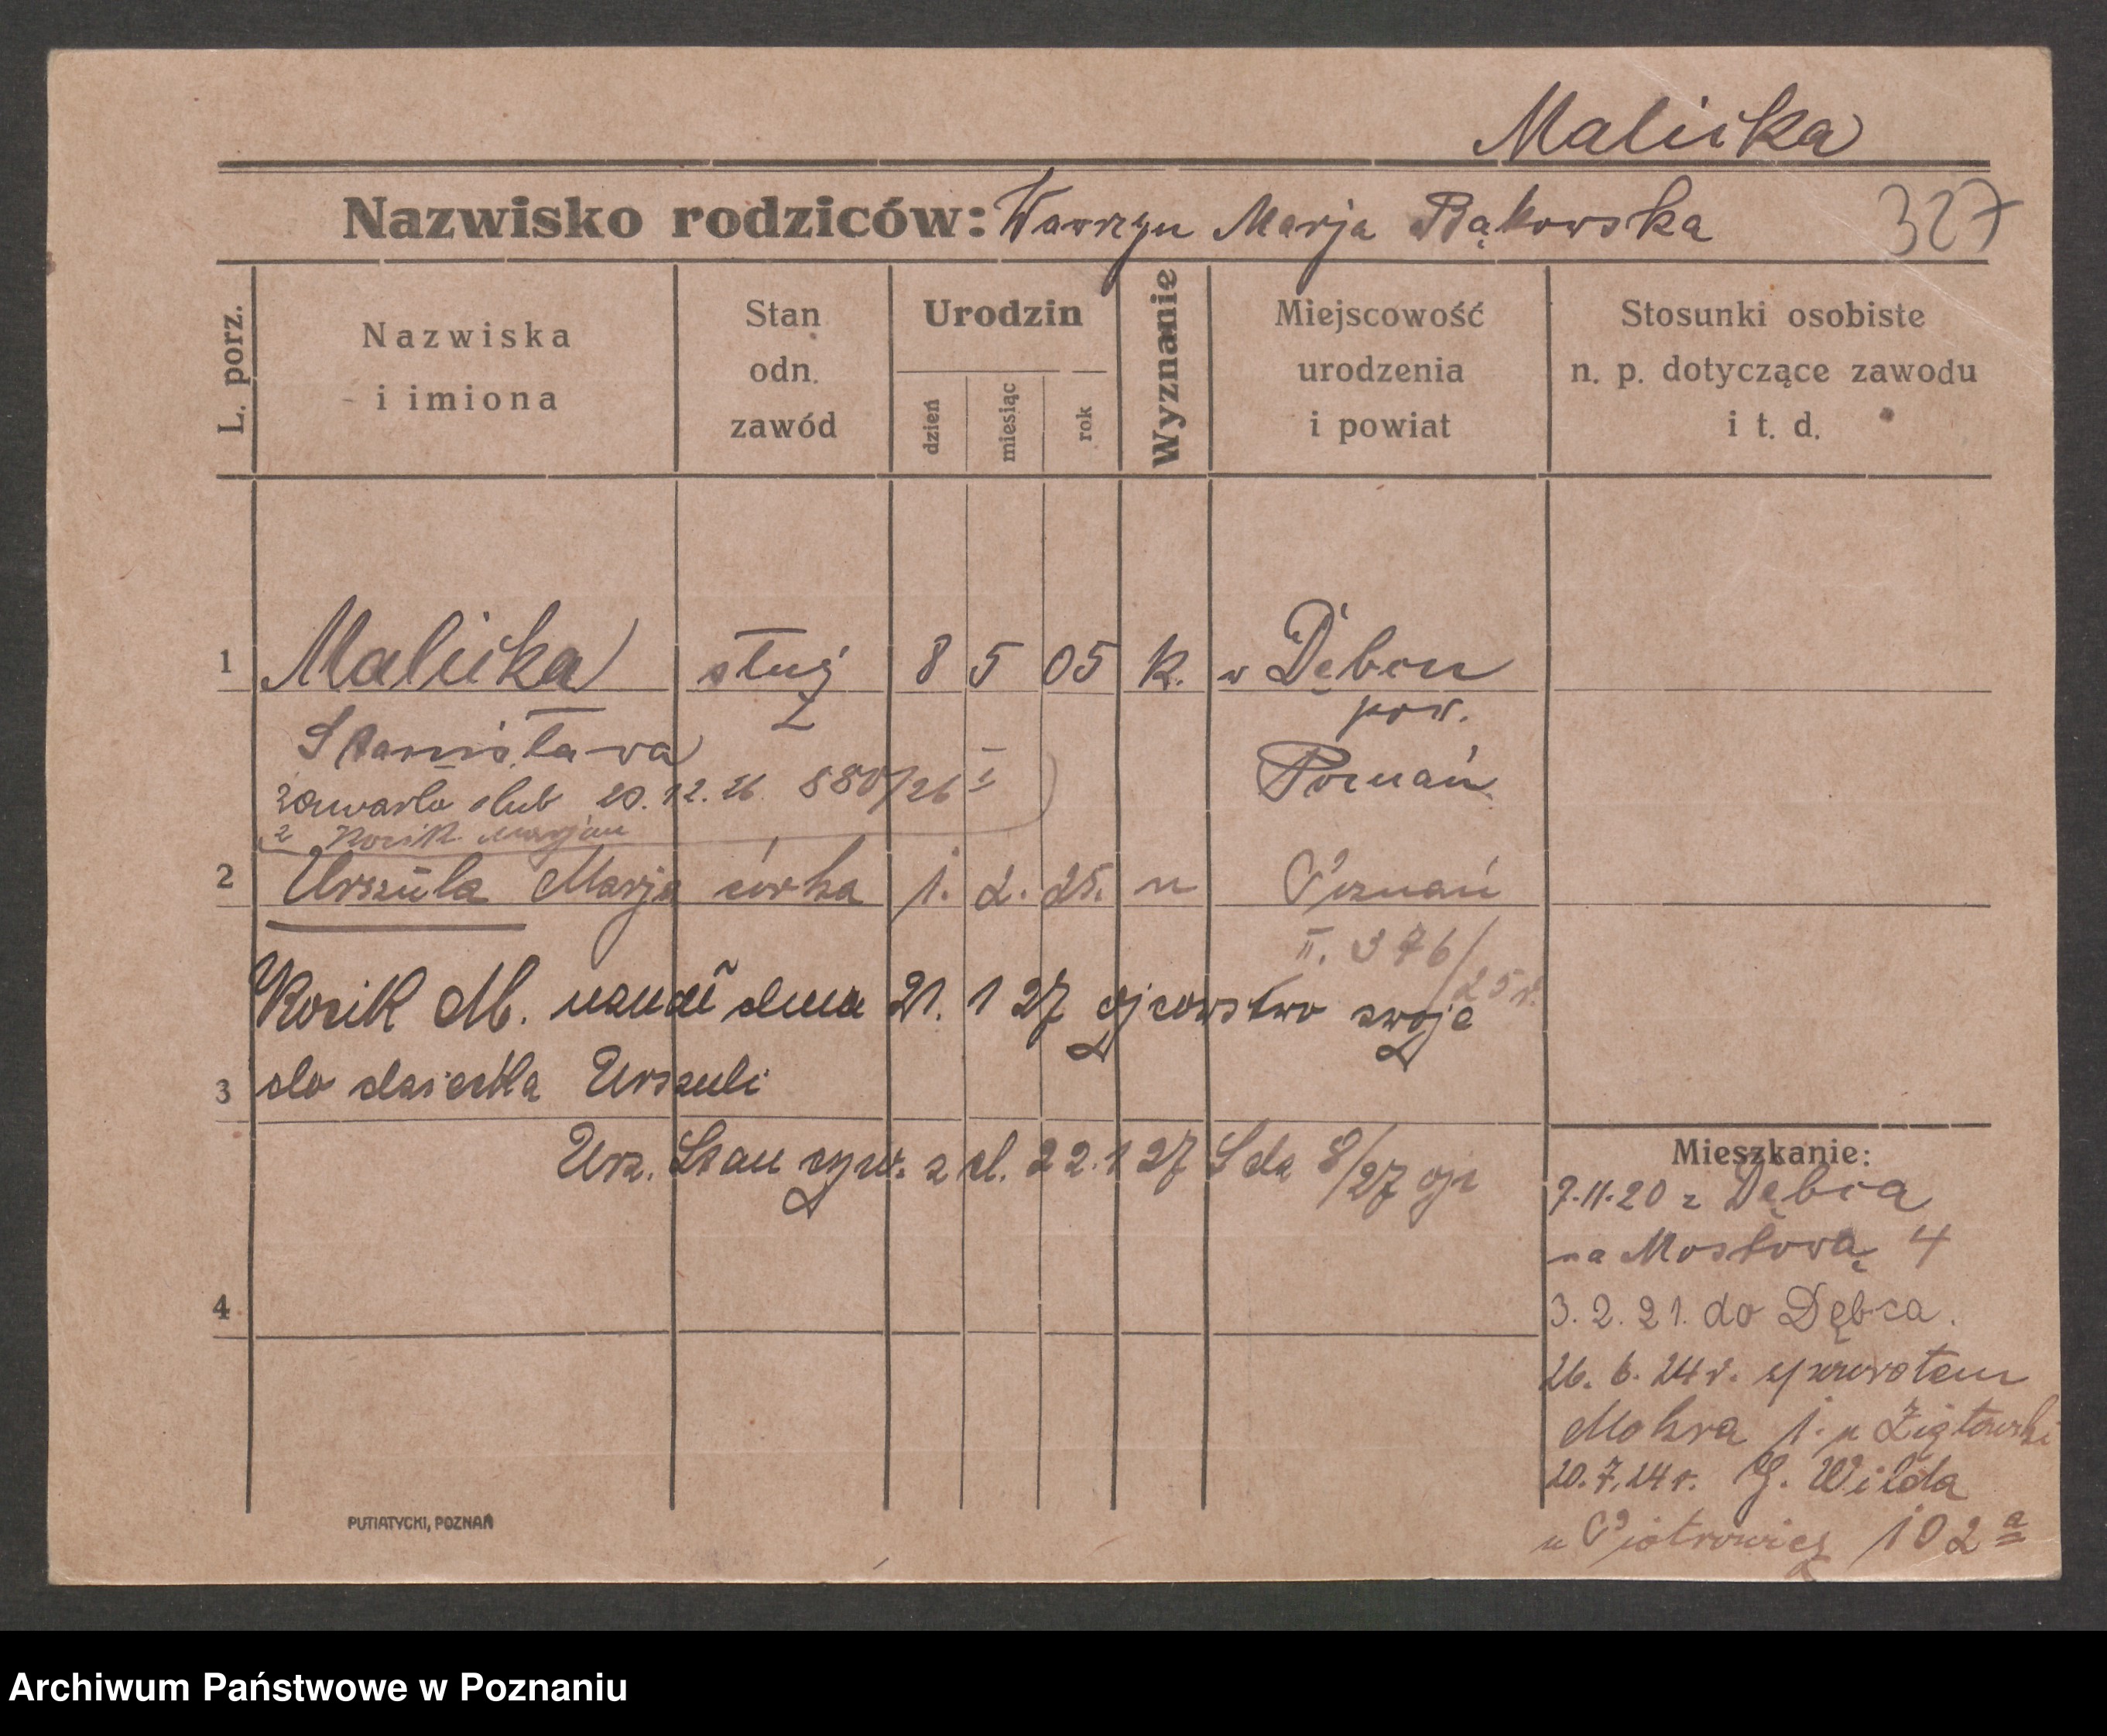 Malicka
Nazwisko rodziców: Wawrzyn Marja Bąkowska 327
L. porz.
Nazwiska
i imiona
Stan
odn.
zawód
Urodzin
dzień
miesiąc
rok
Wyznanie
Miejscowość
urodzenia
i powiat
Stosunki osobiste
n. p. dotyczące zawodu
i t. d.
1 Malicka służ 8 5 05 k. w Dębcu
pow.
Stanisława
Poznań
zawarła ślub 20.12.26 880/26 I
z Kosik Marjan
2 Urszula Marja córka 1. 2. 25. n Poznań
II. 376/25 r.
Kosik M. uznał dnia 21. 1 27 ojcowstwo swoje
3 do dziecka Urszuli
Urz. Stan cyw. z d. 22.1 27 8/27
4
Mieszkanie:
7.11.20 z Dębca
na Mostową 4
3. 2. 21. do Dębca.
26. 6. 24 r. z powrotem
Mokra 1. u
20. 7. 24 r. G. Wilda
u Piotrowicz 102 a
PUTIATYCKI, POZNAŃ
Archiwum Państwowe w Poznaniu